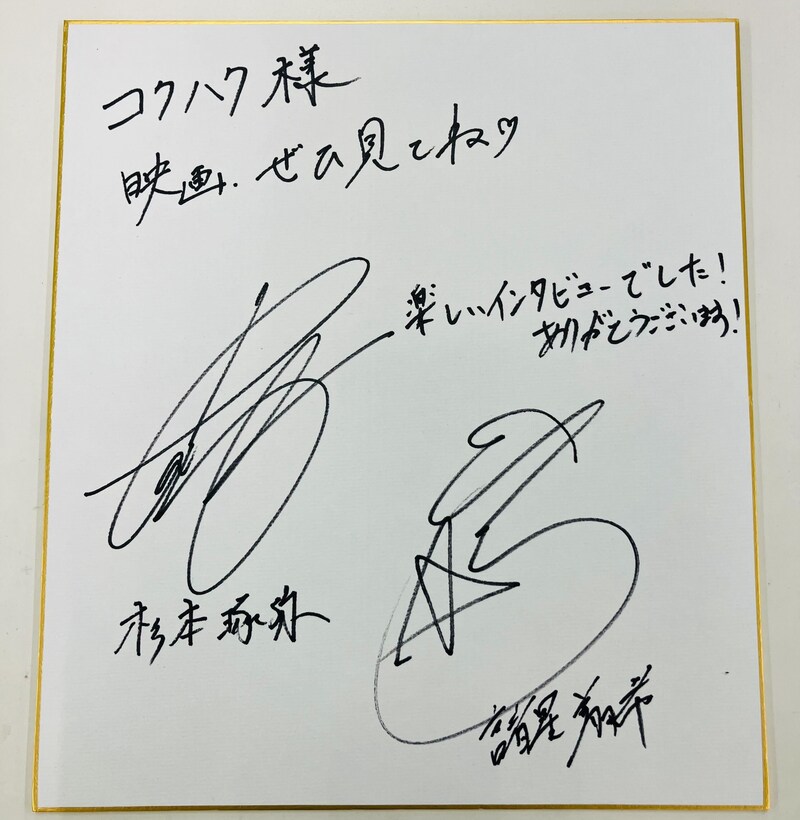 コクハク様
映画、ぜひ見てね♡
楽しいインタビューでした!
ありがとうございます!
杉本琢弥
諸星翔希